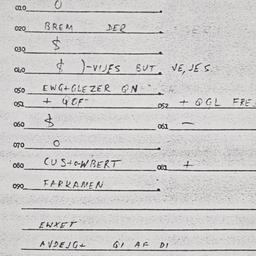 010 0
020 BREM DER
030 $
040 $ )-VIJES BUT VE, JES.
050 EWG+GLEZER QN
051 + 052 + GGL FRE
060 $ 061 —
070 0
080 CUS+OWBERT 081 +
090 TARKAMEN
EWXET
AVDEJG+ GI AF DI